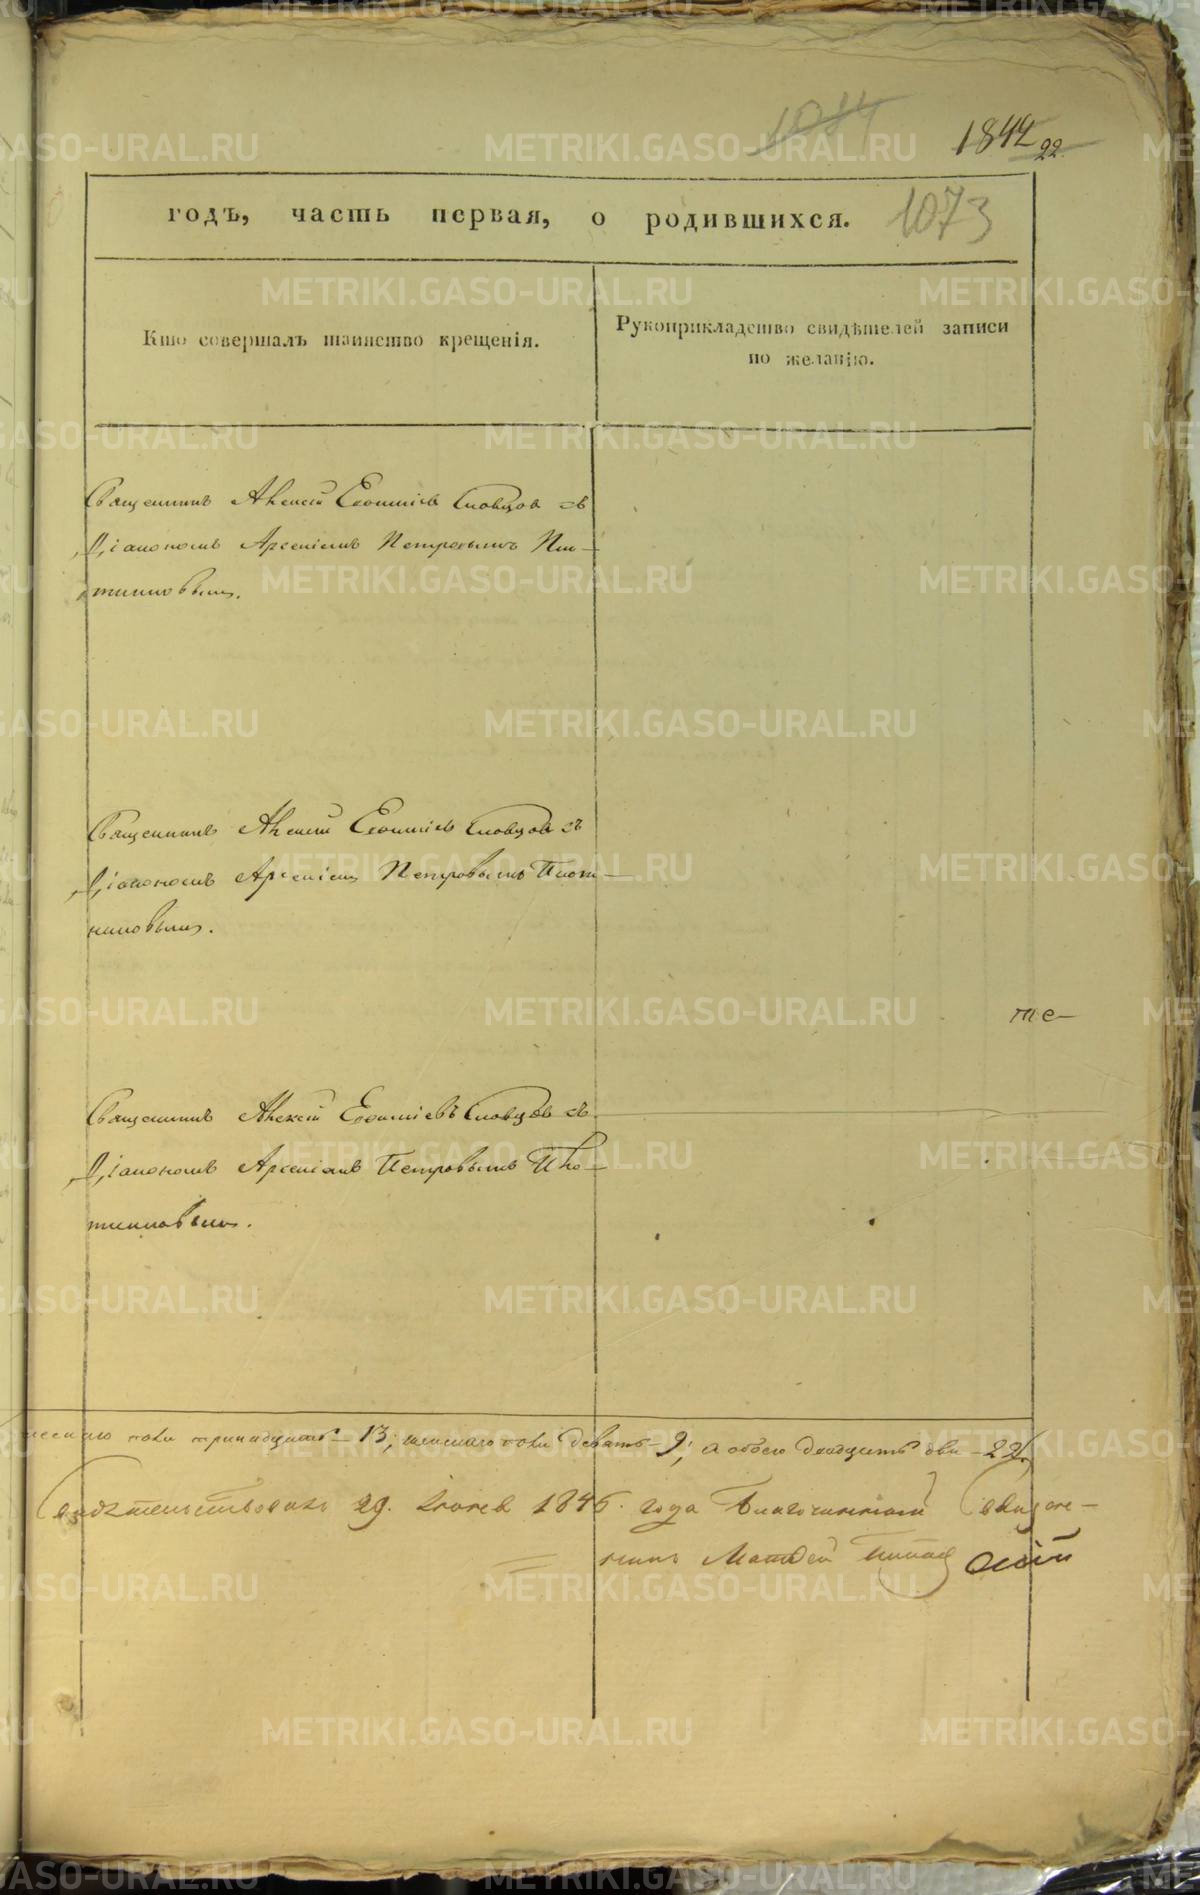 1844
22.
годъ, часть первая, о родившихся. 1073
Кто совершалъ таинство крещенія.
Рукоприкладство свидѣтелей записи
по желанію.
Священникъ Алексей Словцов съ
Діакономъ Арсеніемъ Петровымъ
Священникъ Алексей Словцов съ
Діакономъ Арсеніемъ Петровымъ Плот-
никовымъ.
те-
Священникъ Алексей Словцов съ
Діакономъ Арсеніемъ Петровымъ Пло-
тниковымъ.
пола тринадцать - 13; женскаго пола девять - 9; а обоего двадцать два - 22.
Свидетельствовалъ 29. 1845. года Благочинный Священ-
никъ Матвей
METRIKI.GASO-URAL.RU